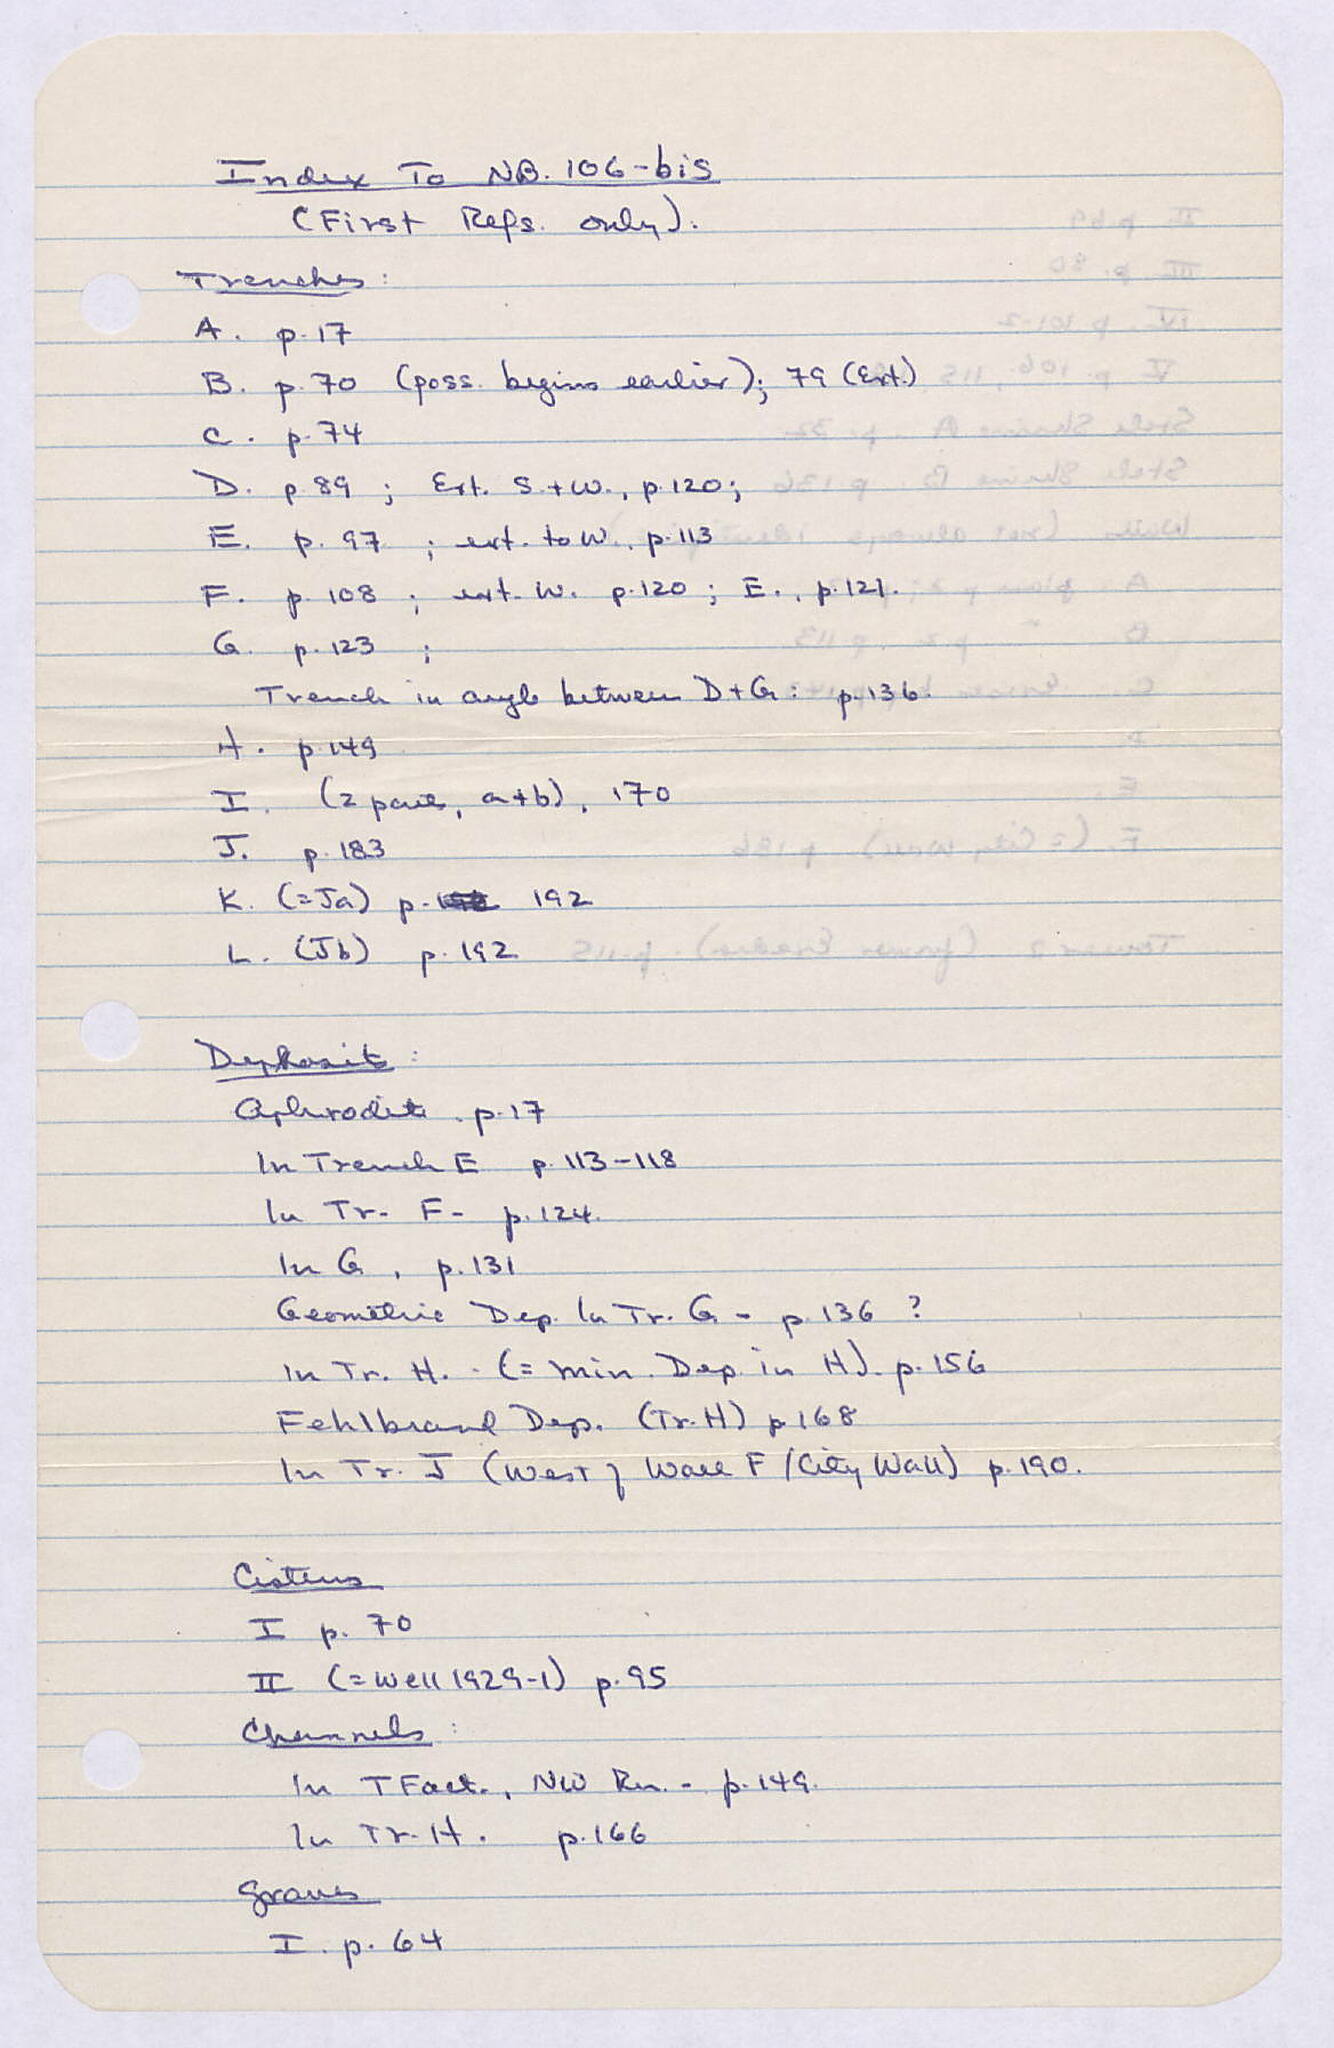 Index To NB. 106-bis
(First Refs. only).
Trenches:
A. p. 17
B. p. 70 (poss. begins earlier); 79 (Ext.)
C. p. 74
D. p. 89 ; Ext. S. + W., p. 120;
E. p. 97 ; ext. to W. p. 113
F. p. 108 ; ext. W. p. 120 ; E., p. 121.
G. p. 123 ;
Trench in angle between D + G: p. 136
H. p. 149
I. (2 parts, a + b), 170
J. p. 183
K. (=Ja) p. 192
L. (Jb) p. 192
Deposits:
Aphrodite. p. 17
In Trench E p. 113-118
In Tr. F - p. 124.
In G, p. 131
Geometric Dep. In Tr. G - p. 136 ?
In Tr. H. - (= Min. Dep. in H). p. 156
Fehlbrand Dep. (Tr. H) p. 168
In Tr. J (West of Wall F / City Wall) p. 190.
Cisterns
I p. 70
II (= Well 1929-1) p. 95
Channels:
In T Fact., NW Rm. - p. 149.
In Tr. H. p. 166
Graves
I. p. 64